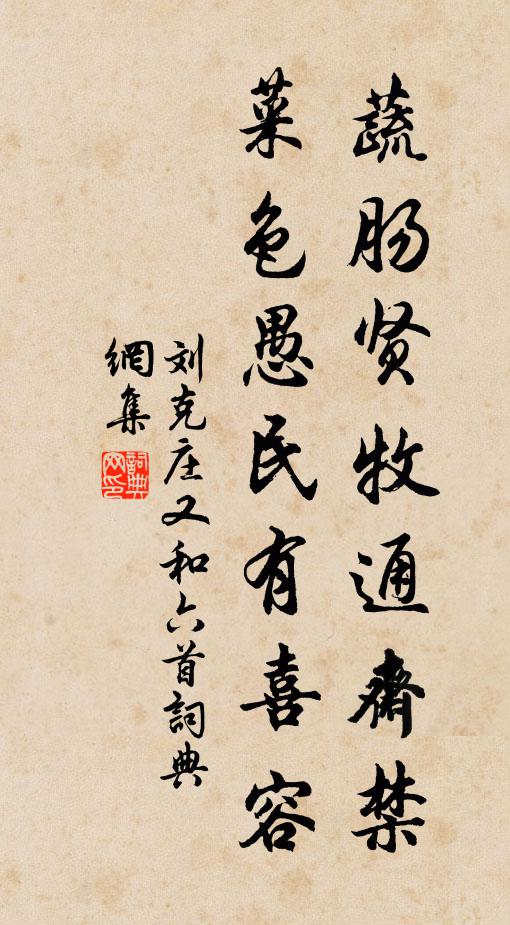 蔬肠贤牧通齋禁
菜色愚民有喜容
刘克庄又和六首詞典
網集
詞典网印